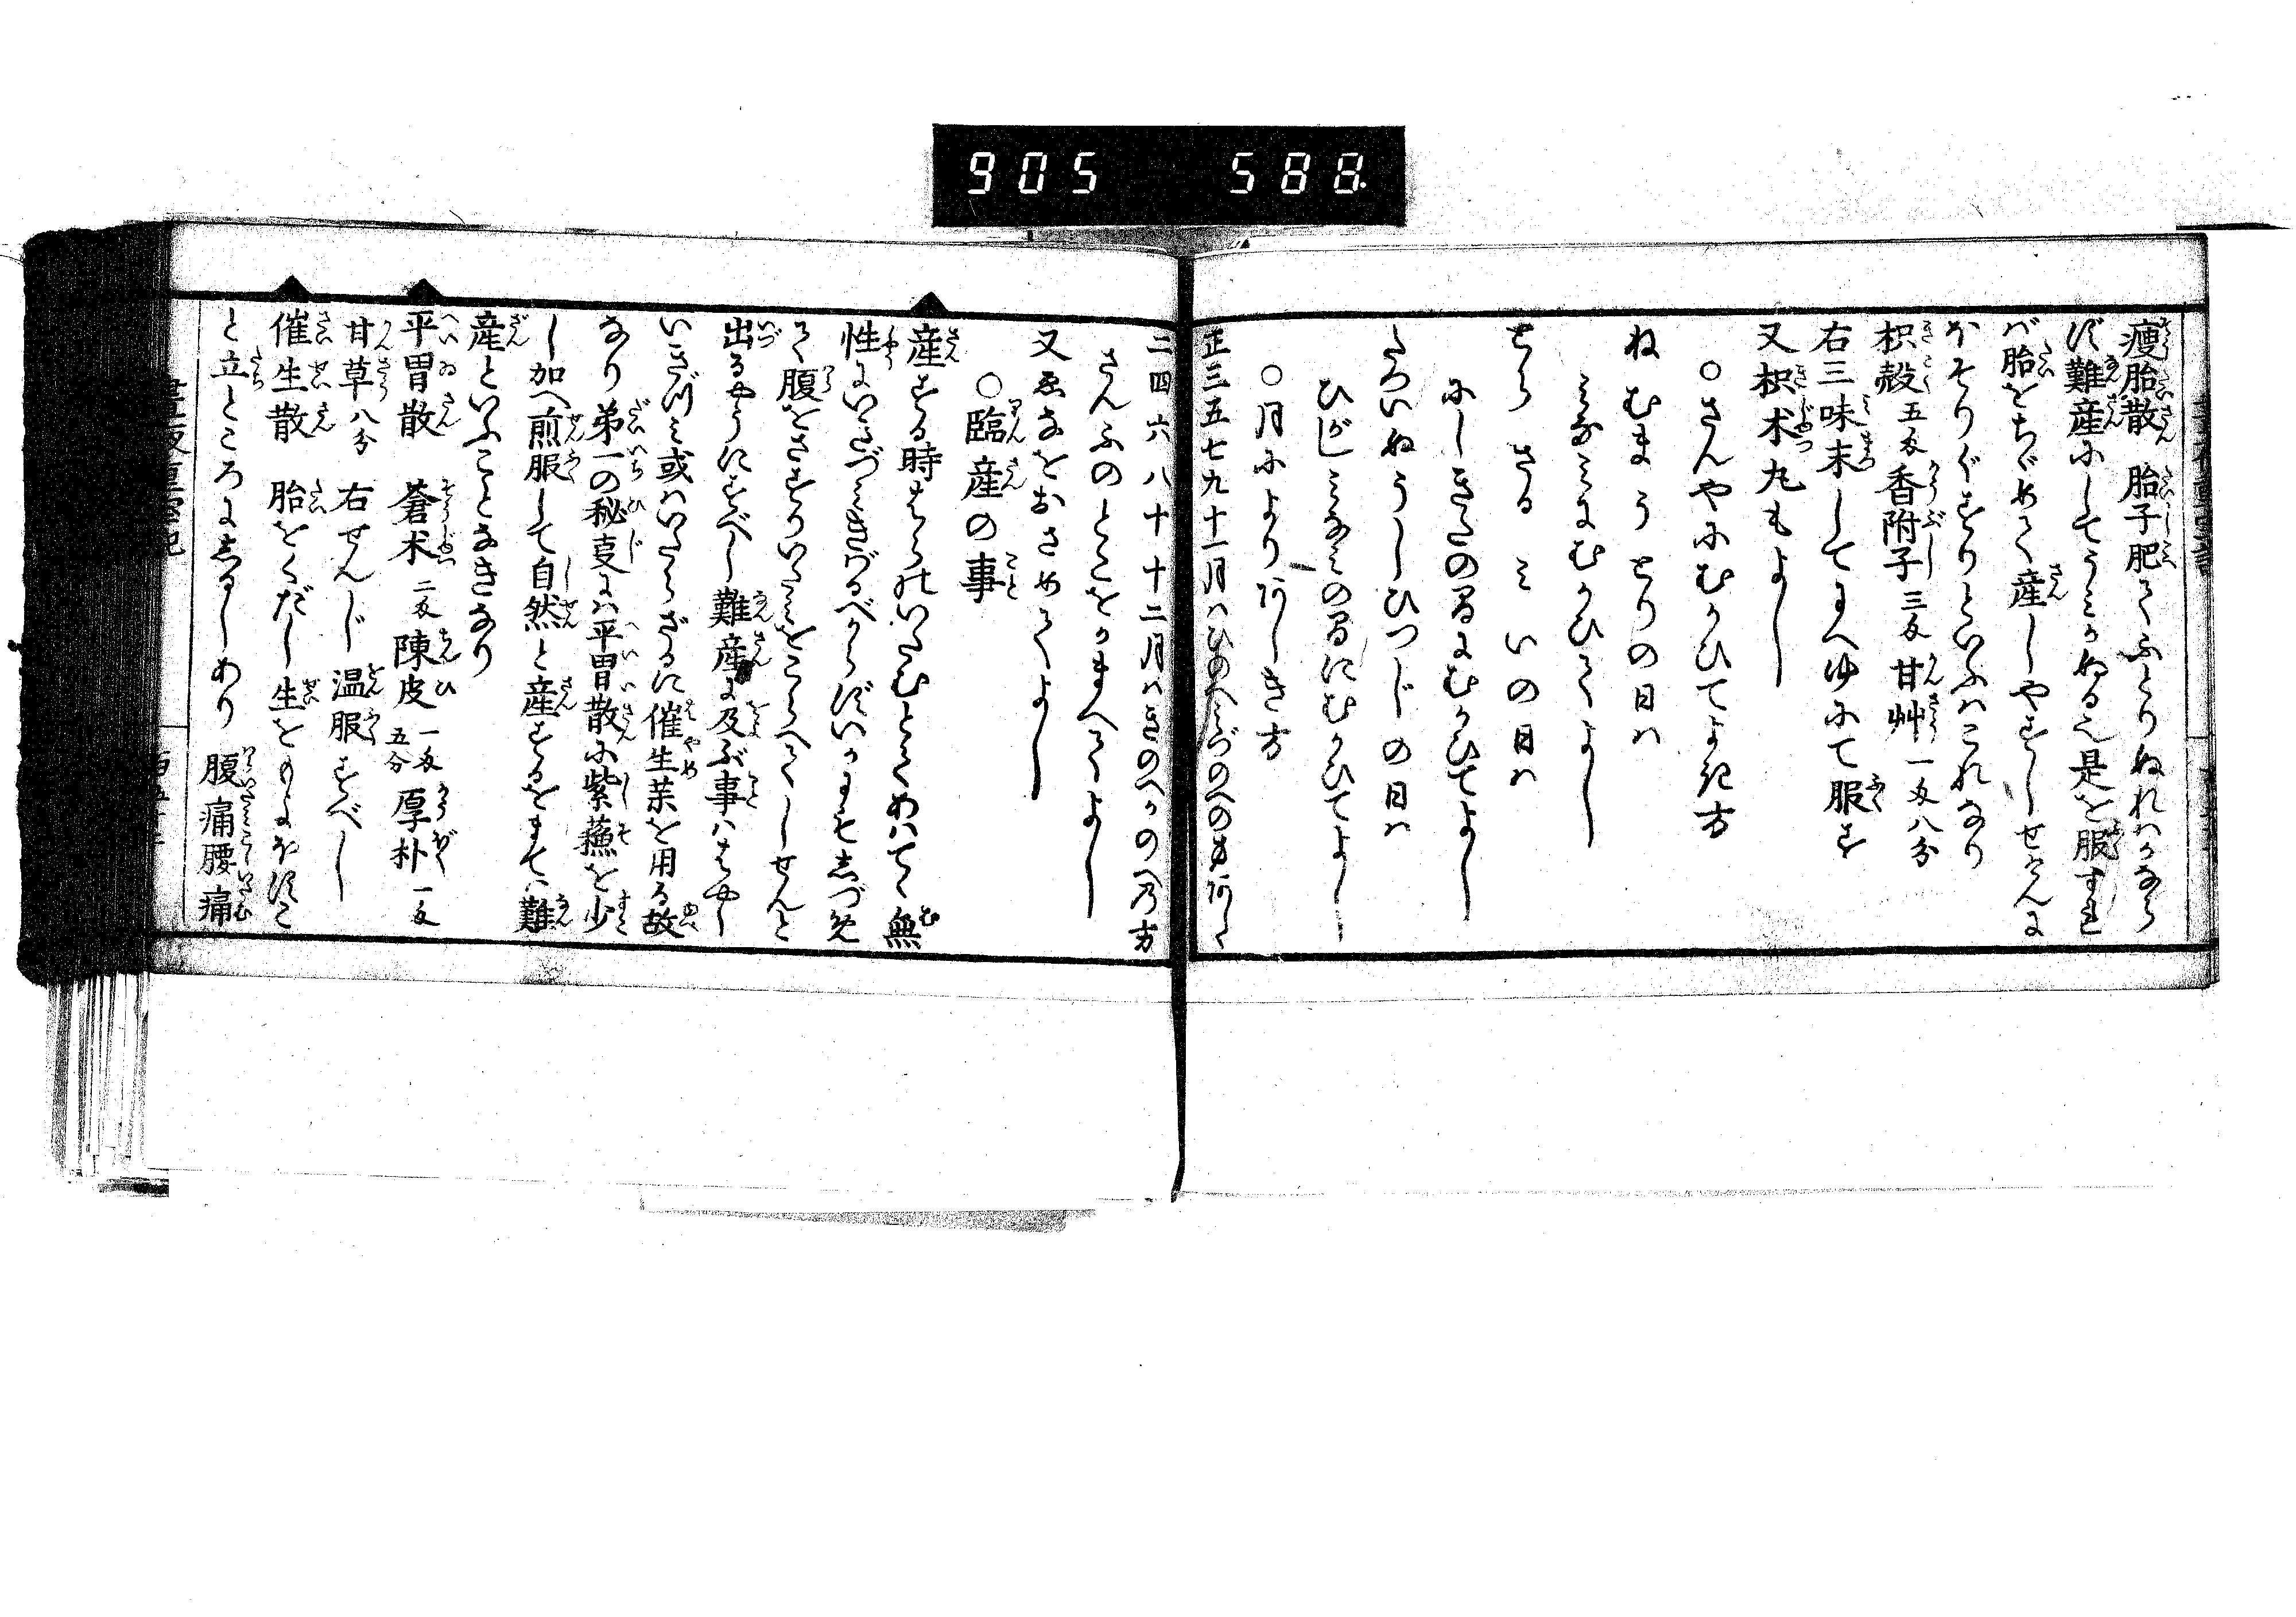 905 588.
瘦胎散 胎子肥てふとりぬれハかなら
ず難産にしてうミかぬる也是を服すれ
バ胎をちゞめて産しやすしせけんに
ほそりぐすりといふハこれなり
枳殻五匁香附子三匁甘艸一匁八分
右三味末してまへゆにて服す
又枳朮丸もよし
○さんやにむかひてよき方
ね むま う とりの日ハ
ミなミにむかひてよし
とら さる ミ いの日ハ
にしきたの間にむかひてよし
たついぬうしひつじの日ハ
ひがしミなミの間にむかひてよし
○月によりあしき方
正三五七九十一月ハひのへミづのへの方あしく
二四六八十十二月ハきのへかのへ乃方
さんふのとこをかまへてよし
又ゑなをおさめてよし
○臨産の事
産する時はらいたむとてあハてゝ無
性にいきづミきづるべからずいかにもしづめ
て腹をさすりいたミをこらへてしせんと
出るやうにすべし難産に及ぶ事ハはやく
いきづミ或ハいたらざるに催生薬を用る故
なり第一の秘事にハ平胃散に紫蘓を少
し加へ煎服して自然と産するをまて難
産といふことなきなり
平胃散 蒼朮二匁陳皮一匁五分厚朴一匁
甘草八分 右せんじ温服すべし
催生散 胎をくだし生を
と立ところにしるしあり 腹痛腰痛